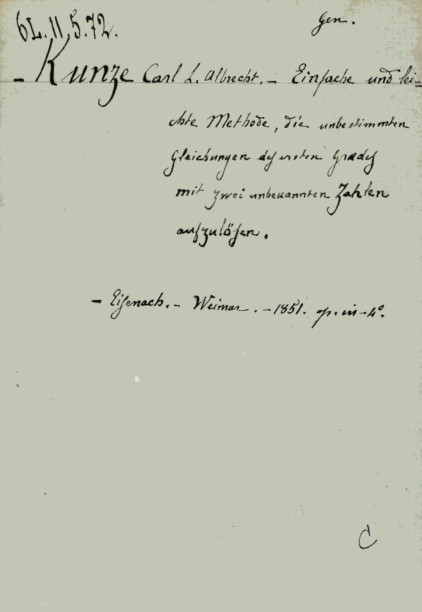 6L.11.5.72.
Gen.
- Kunze Carl L. Albrecht. - Einfache und lei-
chte Methode, die unbestimmten
Gleichungen des ersten Grades
mit zwei unbekannten Zahlen
aufzulösen.
- Eisenach. - Weimar. - 1851. op. in-4°.
C